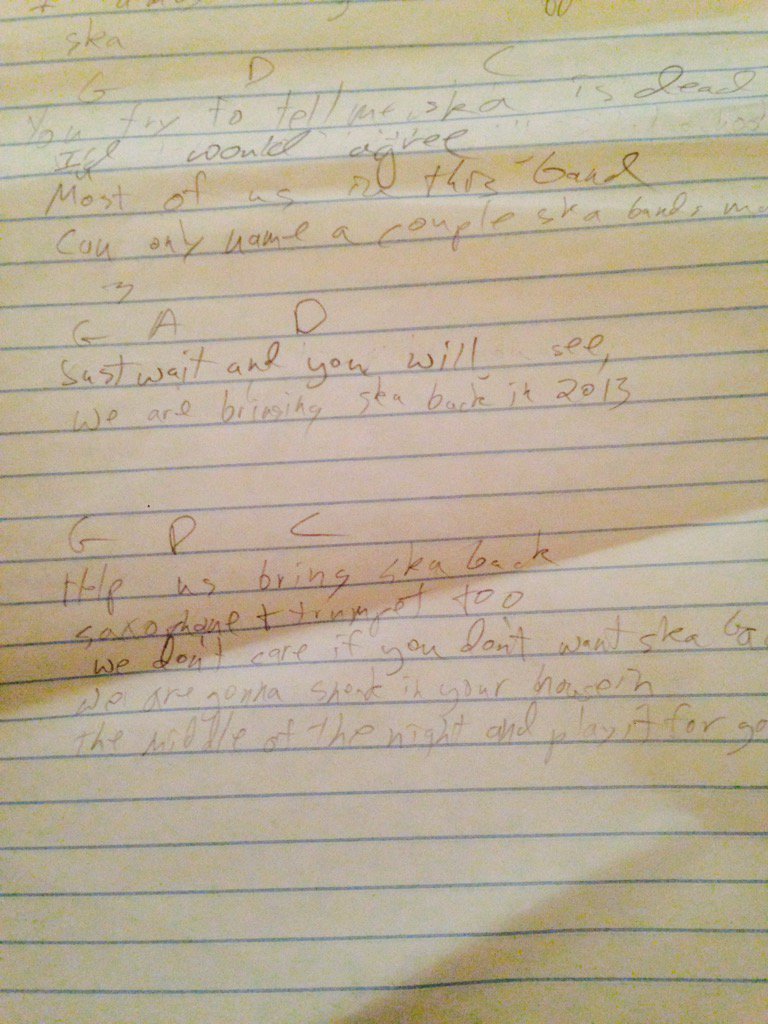 ska
G D C
You try to tell me ska is dead
I'd would agree
Most of us in this band
Can only name a couple ska bands
G A D
Just wait and you will see,
We are bringing ska back in 2013
G D C
Help us bring ska back
saxophone + trumpet too
we don't care if you don't want ska
We are gonna sneak in your house in
the middle of the night and play it for